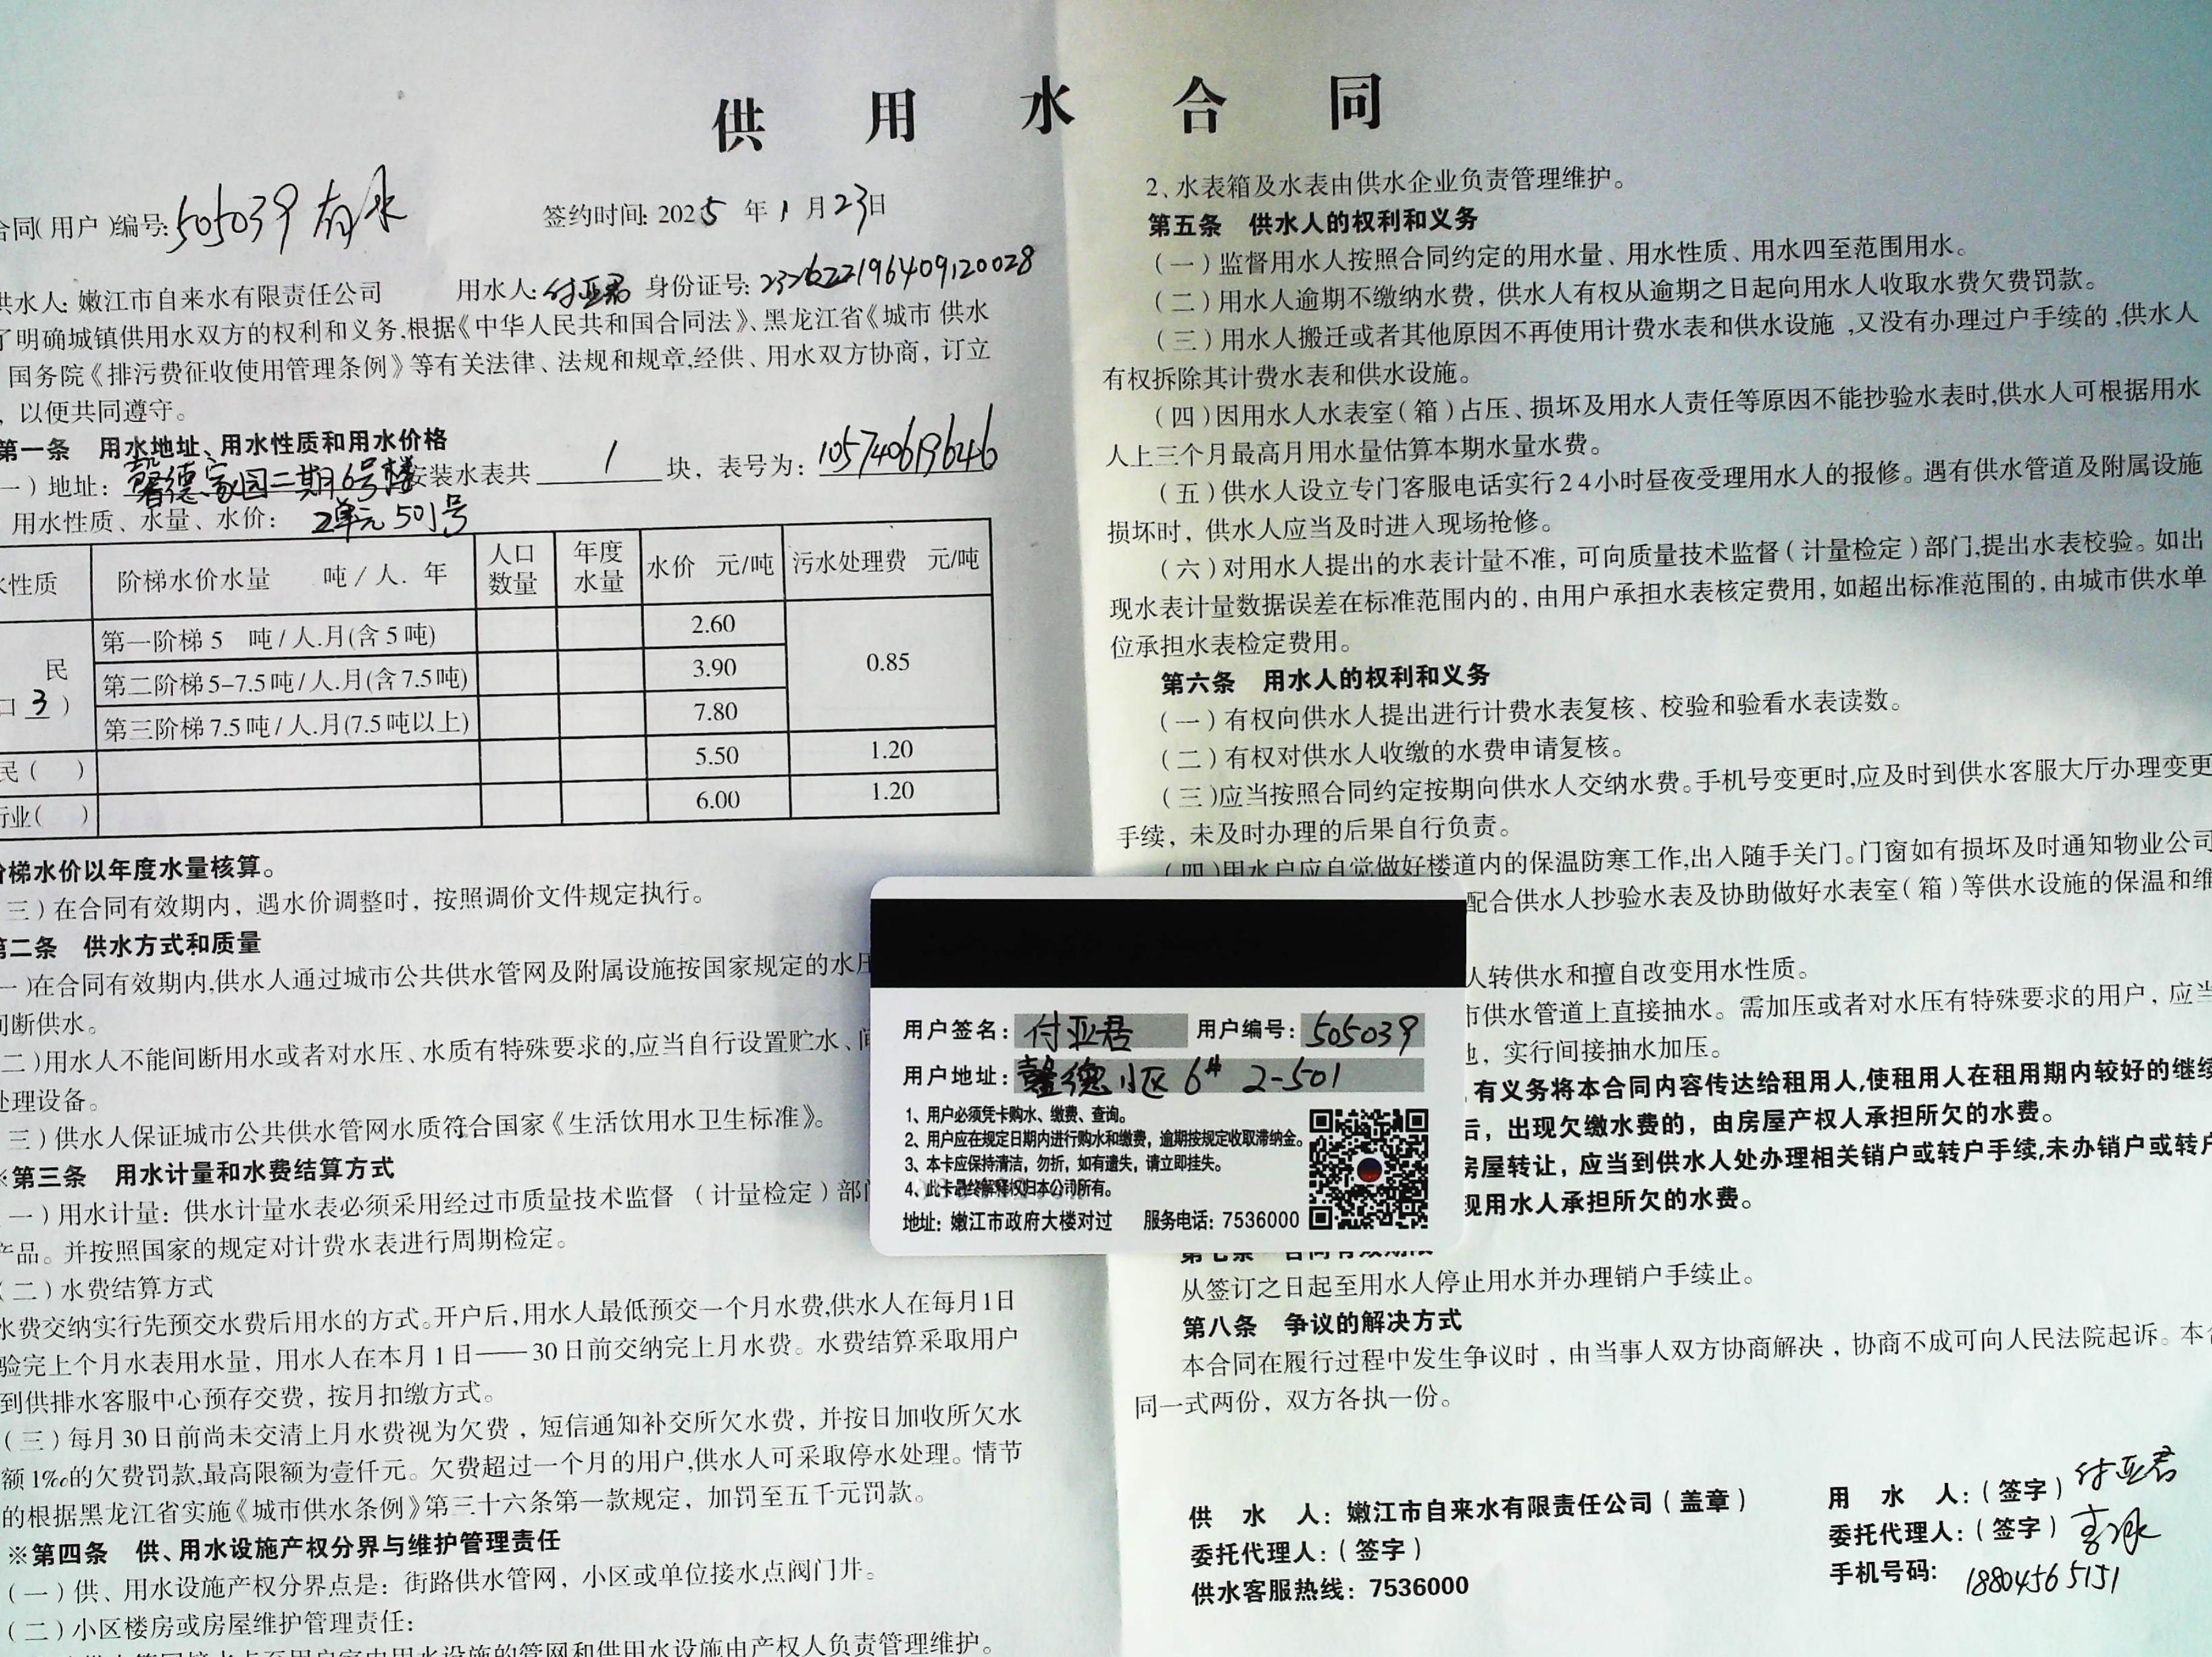 供用水合同
合同(用户)编号:505039 有水
签约时间:2025年1月23日
供水人:嫩江市自来水有限责任公司 用水人:付亚君 身份证号:232622196409120028
了明确城镇供用水双方的权利和义务,根据《中华人民共和国合同法》、黑龙江省《城市供水
国务院《排污费征收使用管理条例》等有关法律、法规和规章,经供、用水双方协商,订立
,以便共同遵守。
第一条 用水地址、用水性质和用水价格
一)地址:馨德家园二期6号楼 安装水表共 1 块,表号为:105740619646
用水性质、水量、水价: 2单元501号
水性质 阶梯水价水量 吨/人.年 人口数量 年度水量 水价 元/吨 污水处理费 元/吨
民
口 3 )
第一阶梯5 吨/人.月(含5吨) 2.60 0.85
第二阶梯5-7.5吨/人.月(含7.5吨) 3.90
第三阶梯7.5吨/人.月(7.5吨以上) 7.80
民( ) 5.50 1.20
行业( ) 6.00 1.20
阶梯水价以年度水量核算。
三)在合同有效期内,遇水价调整时,按照调价文件规定执行。
第二条 供水方式和质量
一)在合同有效期内,供水人通过城市公共供水管网及附属设施按国家规定的水压
间断供水。
二)用水人不能间断用水或者对水压、水质有特殊要求的,应当自行设置贮水、间
处理设备。
三)供水人保证城市公共供水管网水质符合国家《生活饮用水卫生标准》。
※第三条 用水计量和水费结算方式
一)用水计量:供水计量水表必须采用经过市质量技术监督(计量检定)部门
产品。并按照国家的规定对计费水表进行周期检定。
(二)水费结算方式
水费交纳实行先预交水费后用水的方式。开户后,用水人最低预交一个月水费,供水人在每月1日
验完上个月水表用水量,用水人在本月1日——30日前交纳完上月水费。水费结算采取用户
到供排水客服中心预存交费,按月扣缴方式。
(三)每月30日前尚未交清上月水费视为欠费,短信通知补交所欠水费,并按日加收所欠水
额1‰的欠费罚款,最高限额为壹仟元。欠费超过一个月的用户,供水人可采取停水处理。情节
的根据黑龙江省实施《城市供水条例》第三十六条第一款规定,加罚至五千元罚款。
※第四条 供、用水设施产权分界与维护管理责任
(一)供、用水设施产权分界点是:街路供水管网,小区或单位接水点阀门井。
(二)小区楼房或房屋维护管理责任:
的管网和供用水设施由产权人负责管理维护。
2、水表箱及水表由供水企业负责管理维护。
第五条 供水人的权利和义务
(一)监督用水人按照合同约定的用水量、用水性质、用水四至范围用水。
(二)用水人逾期不缴纳水费,供水人有权从逾期之日起向用水人收取水费欠费罚款。
(三)用水人搬迁或者其他原因不再使用计费水表和供水设施,又没有办理过户手续的,供水人
有权拆除其计费水表和供水设施。
(四)因用水人水表室(箱)占压、损坏及用水人责任等原因不能抄验水表时,供水人可根据用水
人上三个月最高月用水量估算本期水量水费。
(五)供水人设立专门客服电话实行24小时昼夜受理用水人的报修。遇有供水管道及附属设施
损坏时,供水人应当及时进入现场抢修。
(六)对用水人提出的水表计量不准,可向质量技术监督(计量检定)部门,提出水表校验。如出
现水表计量数据误差在标准范围内的,由用户承担水表核定费用,如超出标准范围的,由城市供水单
位承担水表检定费用。
第六条 用水人的权利和义务
(一)有权向供水人提出进行计费水表复核、校验和验看水表读数。
(二)有权对供水人收缴的水费申请复核。
(三)应当按照合同约定按期向供水人交纳水费。手机号变更时,应及时到供水客服大厅办理变更
手续,未及时办理的后果自行负责。
(四)用水户应自觉做好楼道内的保温防寒工作,出入随手关门。门窗如有损坏及时通知物业公司
配合供水人抄验水表及协助做好水表室(箱)等供水设施的保温和维
人转供水和擅自改变用水性质。
市供水管道上直接抽水。需加压或者对水压有特殊要求的用户,应当
池,实行间接抽水加压。
,有义务将本合同内容传达给租用人,使租用人在租用期内较好的继续
后,出现欠缴水费的,由房屋产权人承担所欠的水费。
房屋转让,应当到供水人处办理相关销户或转户手续,未办销户或转户
现用水人承担所欠的水费。
第七条 合同有效期限
从签订之日起至用水人停止用水并办理销户手续止。
第八条 争议的解决方式
本合同在履行过程中发生争议时,由当事人双方协商解决,协商不成可向人民法院起诉。本合
同一式两份,双方各执一份。
供水人:嫩江市自来水有限责任公司(盖章)
委托代理人:(签字)
供水客服热线:7536000
用水人:(签字)付亚君
委托代理人:(签字)
手机号码:18804565151
用户签名:付亚君 用户编号:505039
用户地址:馨德小区 6# 2-501
1、用户必须凭卡购水、缴费、查询。
2、用户应在规定日期内进行购水和缴费,逾期按规定收取滞纳金。
3、本卡应保持清洁,勿折,如有遗失,请立即挂失。
4、此卡最终解释权归本公司所有。
地址:嫩江市政府大楼对过 服务电话:7536000